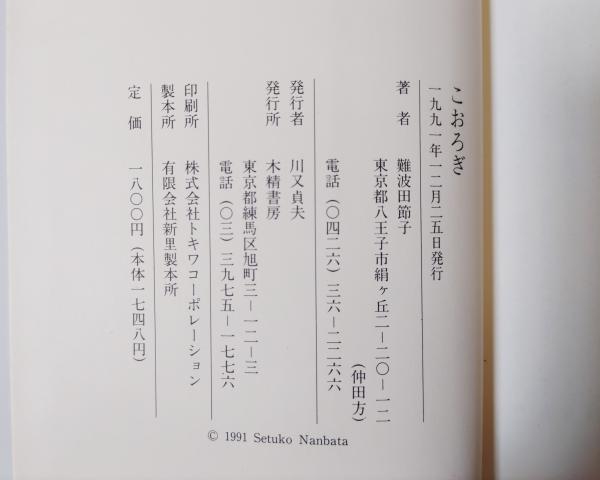 こおろぎ
一九九一年一二月二五日発行
著者 難波田節子
東京都八王子市絹ヶ丘二―二〇―一二
(仲田方)
電話 (〇四二六)三六―二二六六
発行者 川又貞夫
発行所 木精書房
東京都練馬区旭町三―一二―三
電話 (〇三)三九七五―一七七六
印刷所 株式会社トキワコーポレーション
製本所 有限会社新里製本所
定価 一八〇〇円(本体一七四八円)
© 1991 Setuko Nanbata